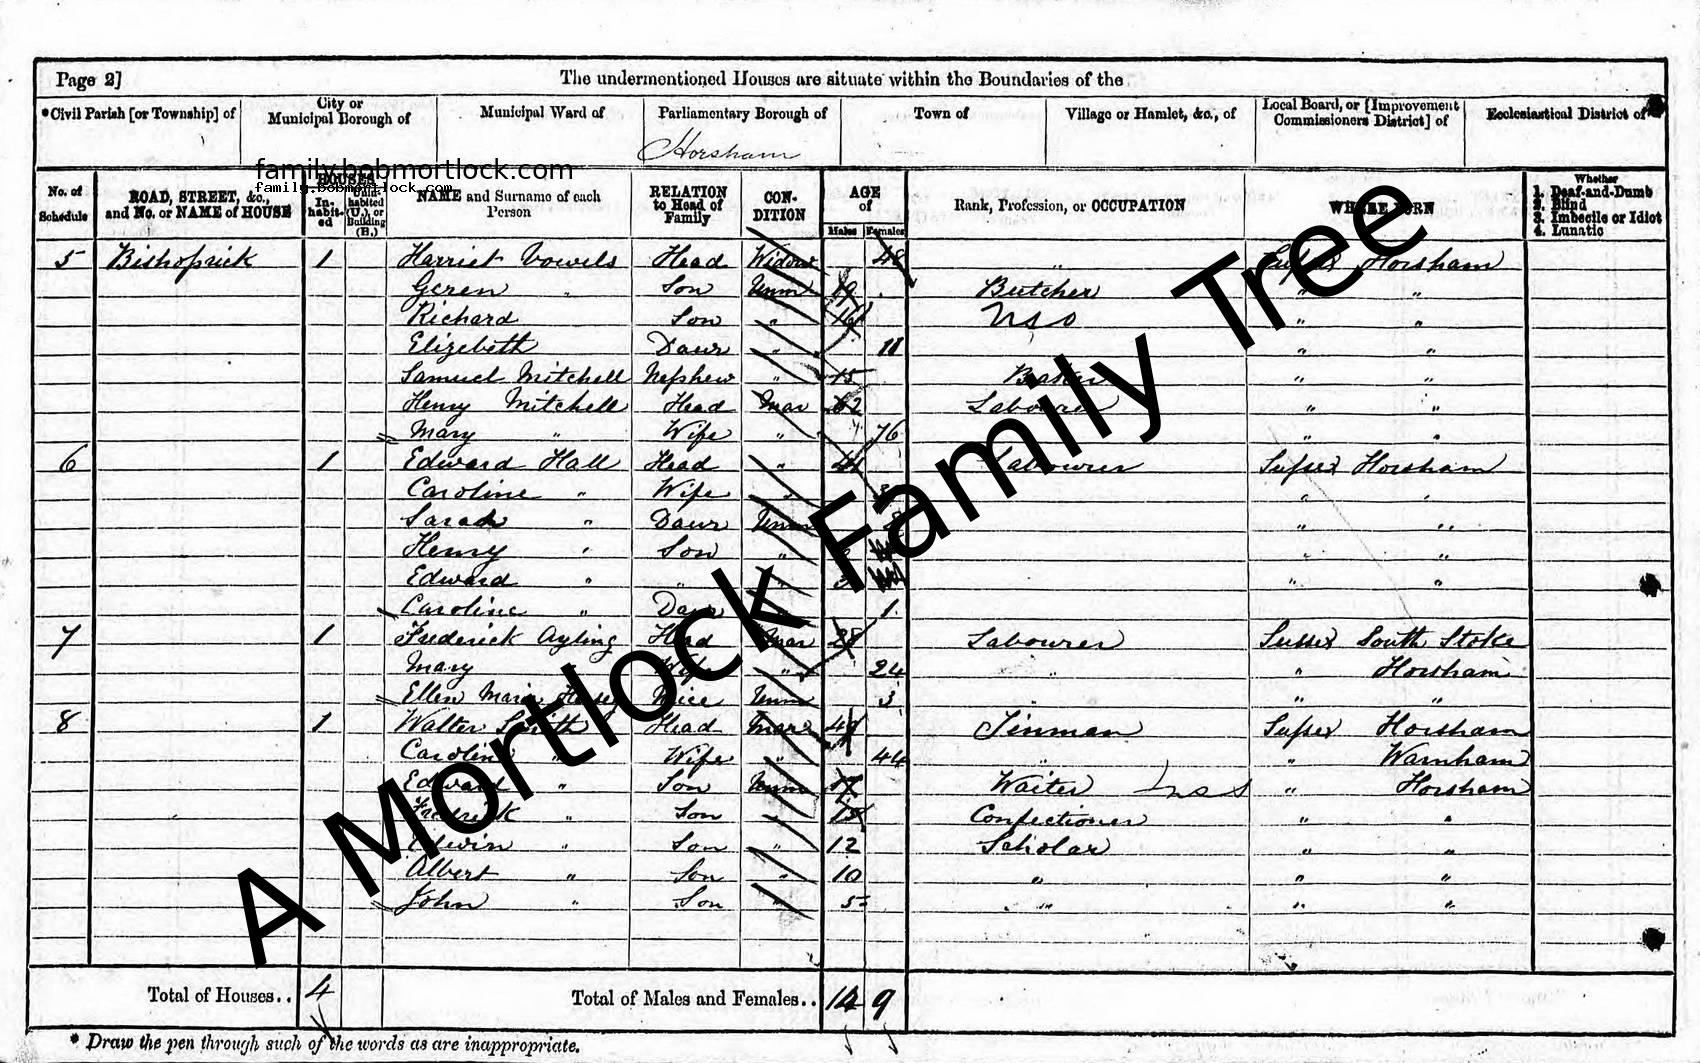 Page 2] The undermentioned Houses are situate within the Boundaries of the
*Civil Parish [or Township] of City or Municipal Borough of Municipal Ward of Parliamentary Borough of Town of Village or Hamlet, &c., of Local Board, or [Improvement Commissioners District] of Ecclesiastical District of
Horsham
family.bobmortlock.com
family.bobmortlock.com
No. of Schedule ROAD, STREET, &c., and No. or NAME of HOUSE HOUSES In-habit-ed Unin-habited (U.), or Building (B.) NAME and Surname of each Person RELATION to Head of Family CON-DITION AGE of Males Females Rank, Profession, or OCCUPATION WHERE BORN Whether 1. Deaf-and-Dumb 2. Blind 3. Imbecile or Idiot 4. Lunatic
5 Bishoprick 1 Harriet Vowels Head Widow 48 " Sussex Horsham
Geren " Son Unm 19 Butcher " "
Richard Son " 16 " "
Elizebeth Daur " 11 " "
Samuel Mitchell Nephew " 15 Baker " "
Henry Mitchell Head Mar Labourer " "
Mary " Wife " 76 " "
6 1 Edward Hall Head " Labourer Sussex Horsham
Caroline " Wife " " "
Sarah " Daur Unm " "
Henry " Son " " "
Edward " " " " "
Caroline " Daur " 1 
7 1 Frederick Ayling Head Mar 28 Labourer Sussex South Stoke
Mary " Wife " 24 " " Horsham
Ellen Maria Neice Unm 3 " " "
8 1 Walter Smith Head Mar Tinman Sussex Horsham
Caroline " Wife " 44 " " Warnham
Edward " Son Unm 17 Waiter " Horsham
Frederick " Son " 15 Confectioner " "
Edwin " Son " 12 Scholar " "
Albert " Son " 10 " " "
John " Son " 5 " " "
Total of Houses.. 4 Total of Males and Females.. 14 9
* Draw the pen through such of the words as are inappropriate.
A Mortlock Family Tree